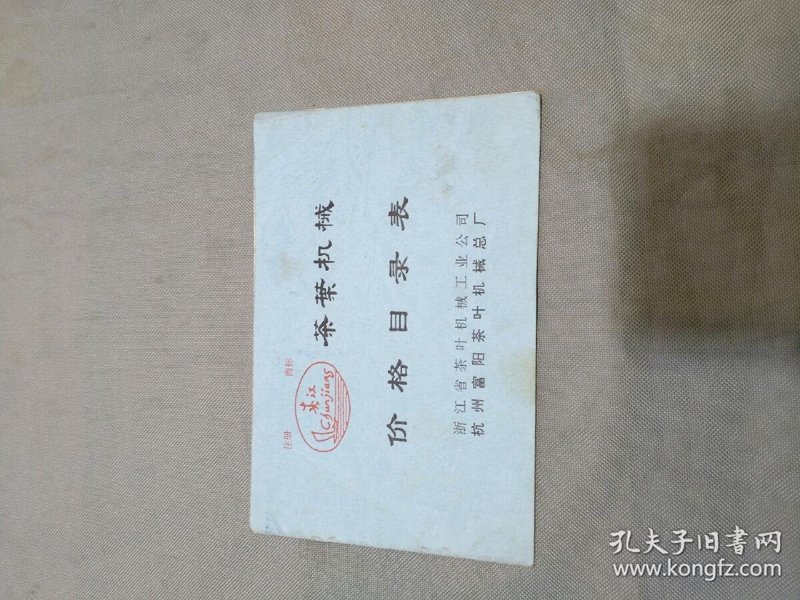 注册 商标
春江
Chunjiang
茶葉机械
价格目录表
浙江省茶叶机械工业公司
杭州富阳茶叶机械总厂
孔夫子旧書网
www.kongfz.com